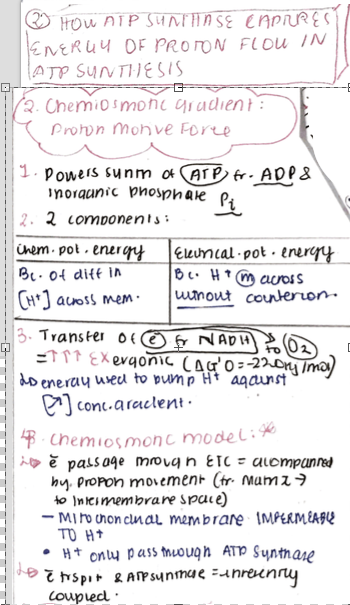 ② HOW ATP SYNTHASE CAPTURES
ENERGY OF PROTON FLOW IN
ATP SYNTHESIS
2. Chemiosmotic gradient:
Proton Motive Force
1. Powers synth of ATP fr. ADP &
inorganic phosphate Pi
2. 2 components:
Chem. pot. energy | Electrical. pot. energy
Bc. of diff in | Bc. H⁺ (m) across
[H⁺] across mem. | without counterion.
3. Transfer of ē fr NADH to O2
= ↑↑↑ Exergonic (ΔG'0 = -220 /mol)
↳ energy used to pump H⁺ against
[↗] conc. gradient.
4. Chemiosmotic model:
↳ ē passage through ETC = accompanied
by. proton movement (fr. Matrix →
to Intermembrane space)
— Mitochondrial membrane IMPERMEABLE
TO H⁺
• H⁺ only pass through ATP synthase
↳ ē trspit & ATP synthase = inherently
coupled.